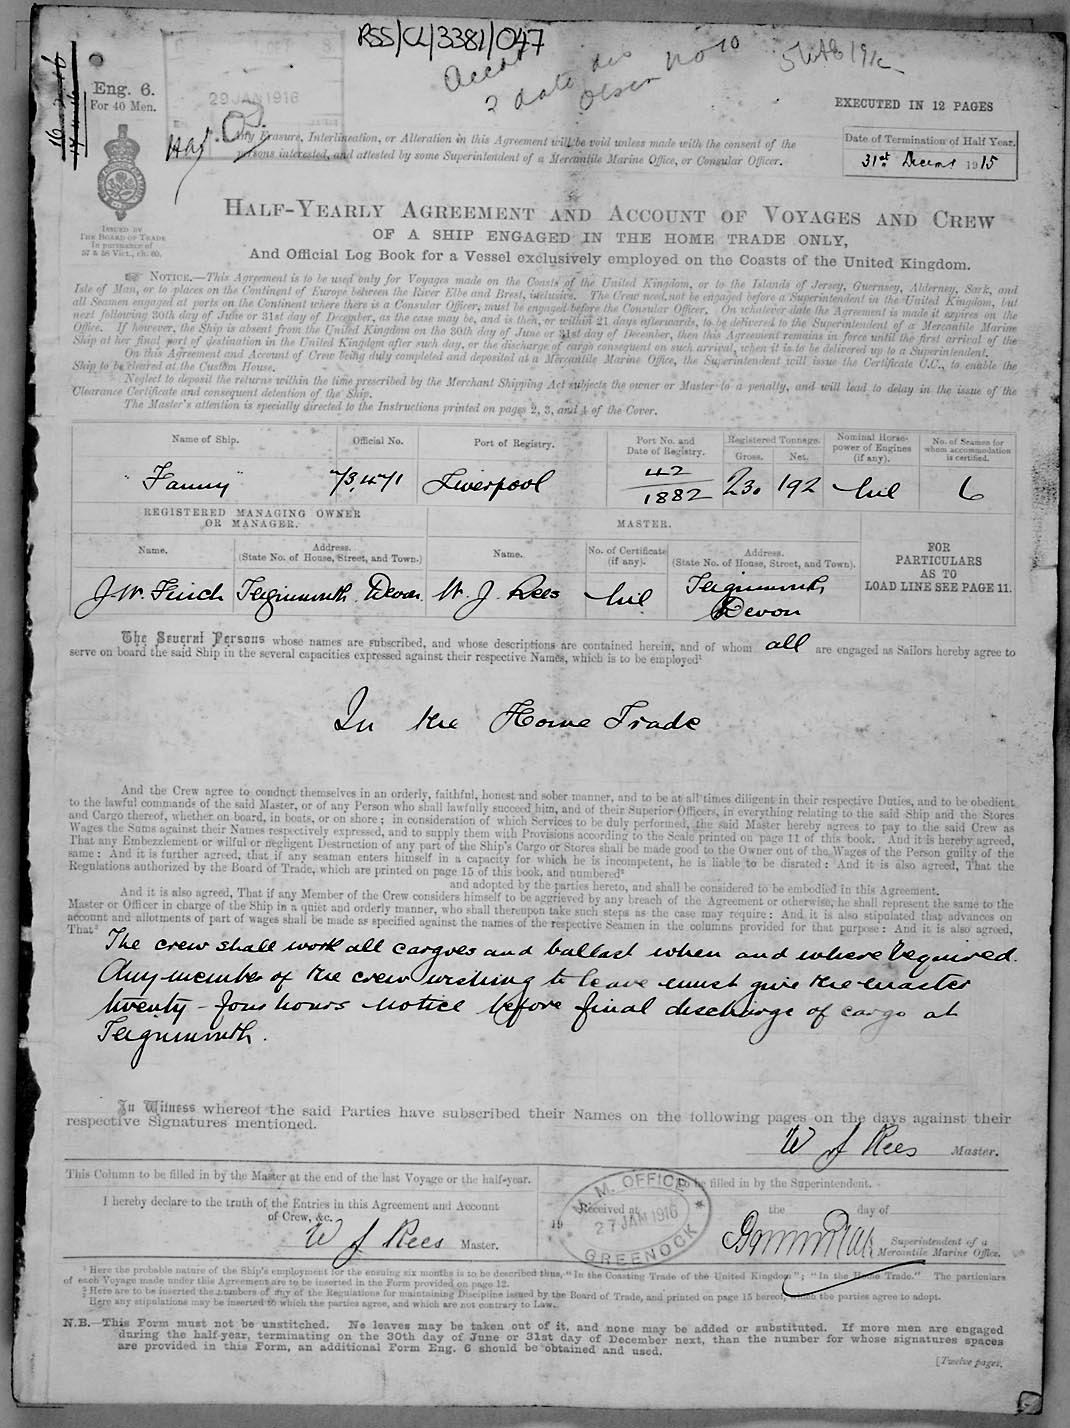 RSS/CL/3381/047
Eng. 6.
For 40 Men.
29 JAN 1916
EXECUTED IN 12 PAGES
Any Erasure, Interlineation, or Alteration in this Agreement will be void unless made with the consent of the
persons interested, and attested by some Superintendent of a Mercantile Marine Office, or Consular Officer.
Date of Termination of Half Year.
31st Decemr 1915
ISSUED BY
THE BOARD OF TRADE
In pursuance of
57 & 58 Vict., ch. 60.
HALF-YEARLY AGREEMENT AND ACCOUNT OF VOYAGES AND CREW
OF A SHIP ENGAGED IN THE HOME TRADE ONLY,
And Official Log Book for a Vessel exclusively employed on the Coasts of the United Kingdom.
NOTICE.—This Agreement is to be used only for Voyages made on the Coasts of the United Kingdom, or to the Islands of Jersey, Guernsey, Alderney, Sark, and
Isle of Man, or to places on the Continent of Europe between the River Elbe and Brest, inclusive. The Crew need not be engaged before a Superintendent in the United Kingdom, but
all Seamen engaged at ports on the Continent where there is a Consular Officer, must be engaged before the Consular Officer. On whatever date the Agreement is made it expires on the
next following 30th day of June or 31st day of December, as the case may be, and is then, or within 21 days afterwards, to be delivered to the Superintendent of a Mercantile Marine
Office. If however, the Ship is absent from the United Kingdom on the 30th day of June or 31st day of December, then this Agreement remains in force until the first arrival of the
Ship at her final port of destination in the United Kingdom after such day, or the discharge of cargo consequent on such arrival, when it is to be delivered up to a Superintendent.
On this Agreement and Account of Crew being duly completed and deposited at a Mercantile Marine Office, the Superintendent will issue the Certificate C.C., to enable the
Ship to be cleared at the Custom House.
Neglect to deposit the returns within the time prescribed by the Merchant Shipping Act subjects the owner or Master to a penalty, and will lead to delay in the issue of the
Clearance Certificate and consequent detention of the Ship.
The Master's attention is specially directed to the Instructions printed on pages 2, 3, and 4 of the Cover.
Name of Ship. Official No. Port of Registry. Port No. and Date of Registry. Registered Tonnage. Gross. Net. Nominal Horse-power of Engines (if any). No. of Seamen for whom accommodation is certified.
"Fanny" 73,471 Liverpool 42/1882 230 192 Nil 6
REGISTERED MANAGING OWNER
OR MANAGER.
MASTER.
Name. Address. (State No. of House, Street, and Town.) Name. No. of Certificate (if any). Address. (State No. of House, Street, and Town).
FOR
PARTICULARS
AS TO
LOAD LINE SEE PAGE 11.
J W. Finch Teignmouth Devon W. J. Rees Nil Teignmouth Devon
The Several Persons whose names are subscribed, and whose descriptions are contained herein, and of whom all are engaged as Sailors hereby agree to
serve on board the said Ship in the several capacities expressed against their respective Names, which is to be employed¹
In the Home Trade
And the Crew agree to conduct themselves in an orderly, faithful, honest and sober manner, and to be at all times diligent in their respective Duties, and to be obedient
to the lawful commands of the said Master, or of any Person who shall lawfully succeed him, and of their Superior Officers, in everything relating to the said Ship and the Stores
and Cargo thereof, whether on board, in boats, or on shore; in consideration of which Services to be duly performed, the said Master hereby agrees to pay to the said Crew as
Wages the Sums against their Names respectively expressed, and to supply them with Provisions according to the Scale printed on page 11 of this book. And it is hereby agreed,
That any Embezzlement or wilful or negligent Destruction of any part of the Ship's Cargo or Stores shall be made good to the Owner out of the Wages of the Person guilty of the
same: And it is further agreed, that if any seaman enters himself in a capacity for which he is incompetent, he is liable to be disrated: And it is also agreed, That the
Regulations authorized by the Board of Trade, which are printed on page 15 of this book, and numbered²
and adopted by the parties hereto, and shall be considered to be embodied in this Agreement.
And it is also agreed, That if any Member of the Crew considers himself to be aggrieved by any breach of the Agreement or otherwise, he shall represent the same to the
Master or Officer in charge of the Ship in a quiet and orderly manner, who shall thereupon take such steps as the case may require: And it is also stipulated that advances on
account and allotments of part of wages shall be made as specified against the names of the respective Seamen in the columns provided for that purpose: And it is also agreed,
That³
The crew shall work all cargoes and ballast when and where required.
Any member of the crew wishing to leave must give the master
twenty-four hours notice before final discharge of cargo at
Teignmouth.
In Witness whereof the said Parties have subscribed their Names on the following pages on the days against their
respective Signatures mentioned.
W J Rees Master.
This Column to be filled in by the Master at the end of the last Voyage or the half-year.
I hereby declare to the truth of the Entries in this Agreement and Account
of Crew, &c.
W J Rees Master.
To be filled in by the Superintendent.
Received at the day of
19
M. M. OFFICE
27 JAN 1916
GREENOCK
Superintendent of a
Mercantile Marine Office.
¹ Here the probable nature of the Ship's employment for the ensuing six months is to be described thus, "In the Coasting Trade of the United Kingdom"; "In the Home Trade." The particulars
of each Voyage made under this Agreement are to be inserted in the Form provided on page 12.
² Here are to be inserted the numbers of any of the Regulations for maintaining Discipline issued by the Board of Trade, and printed on page 15 hereof, which the parties agree to adopt.
Here any stipulations may be inserted to which the parties agree, and which are not contrary to Law.
N.B.—This Form must not be unstitched. No leaves may be taken out of it, and none may be added or substituted. If more men are engaged
during the half-year, terminating on the 30th day of June or 31st day of December next, than the number for whose signatures spaces
are provided in this Form, an additional Form Eng. 6 should be obtained and used.
[Twelve pages.